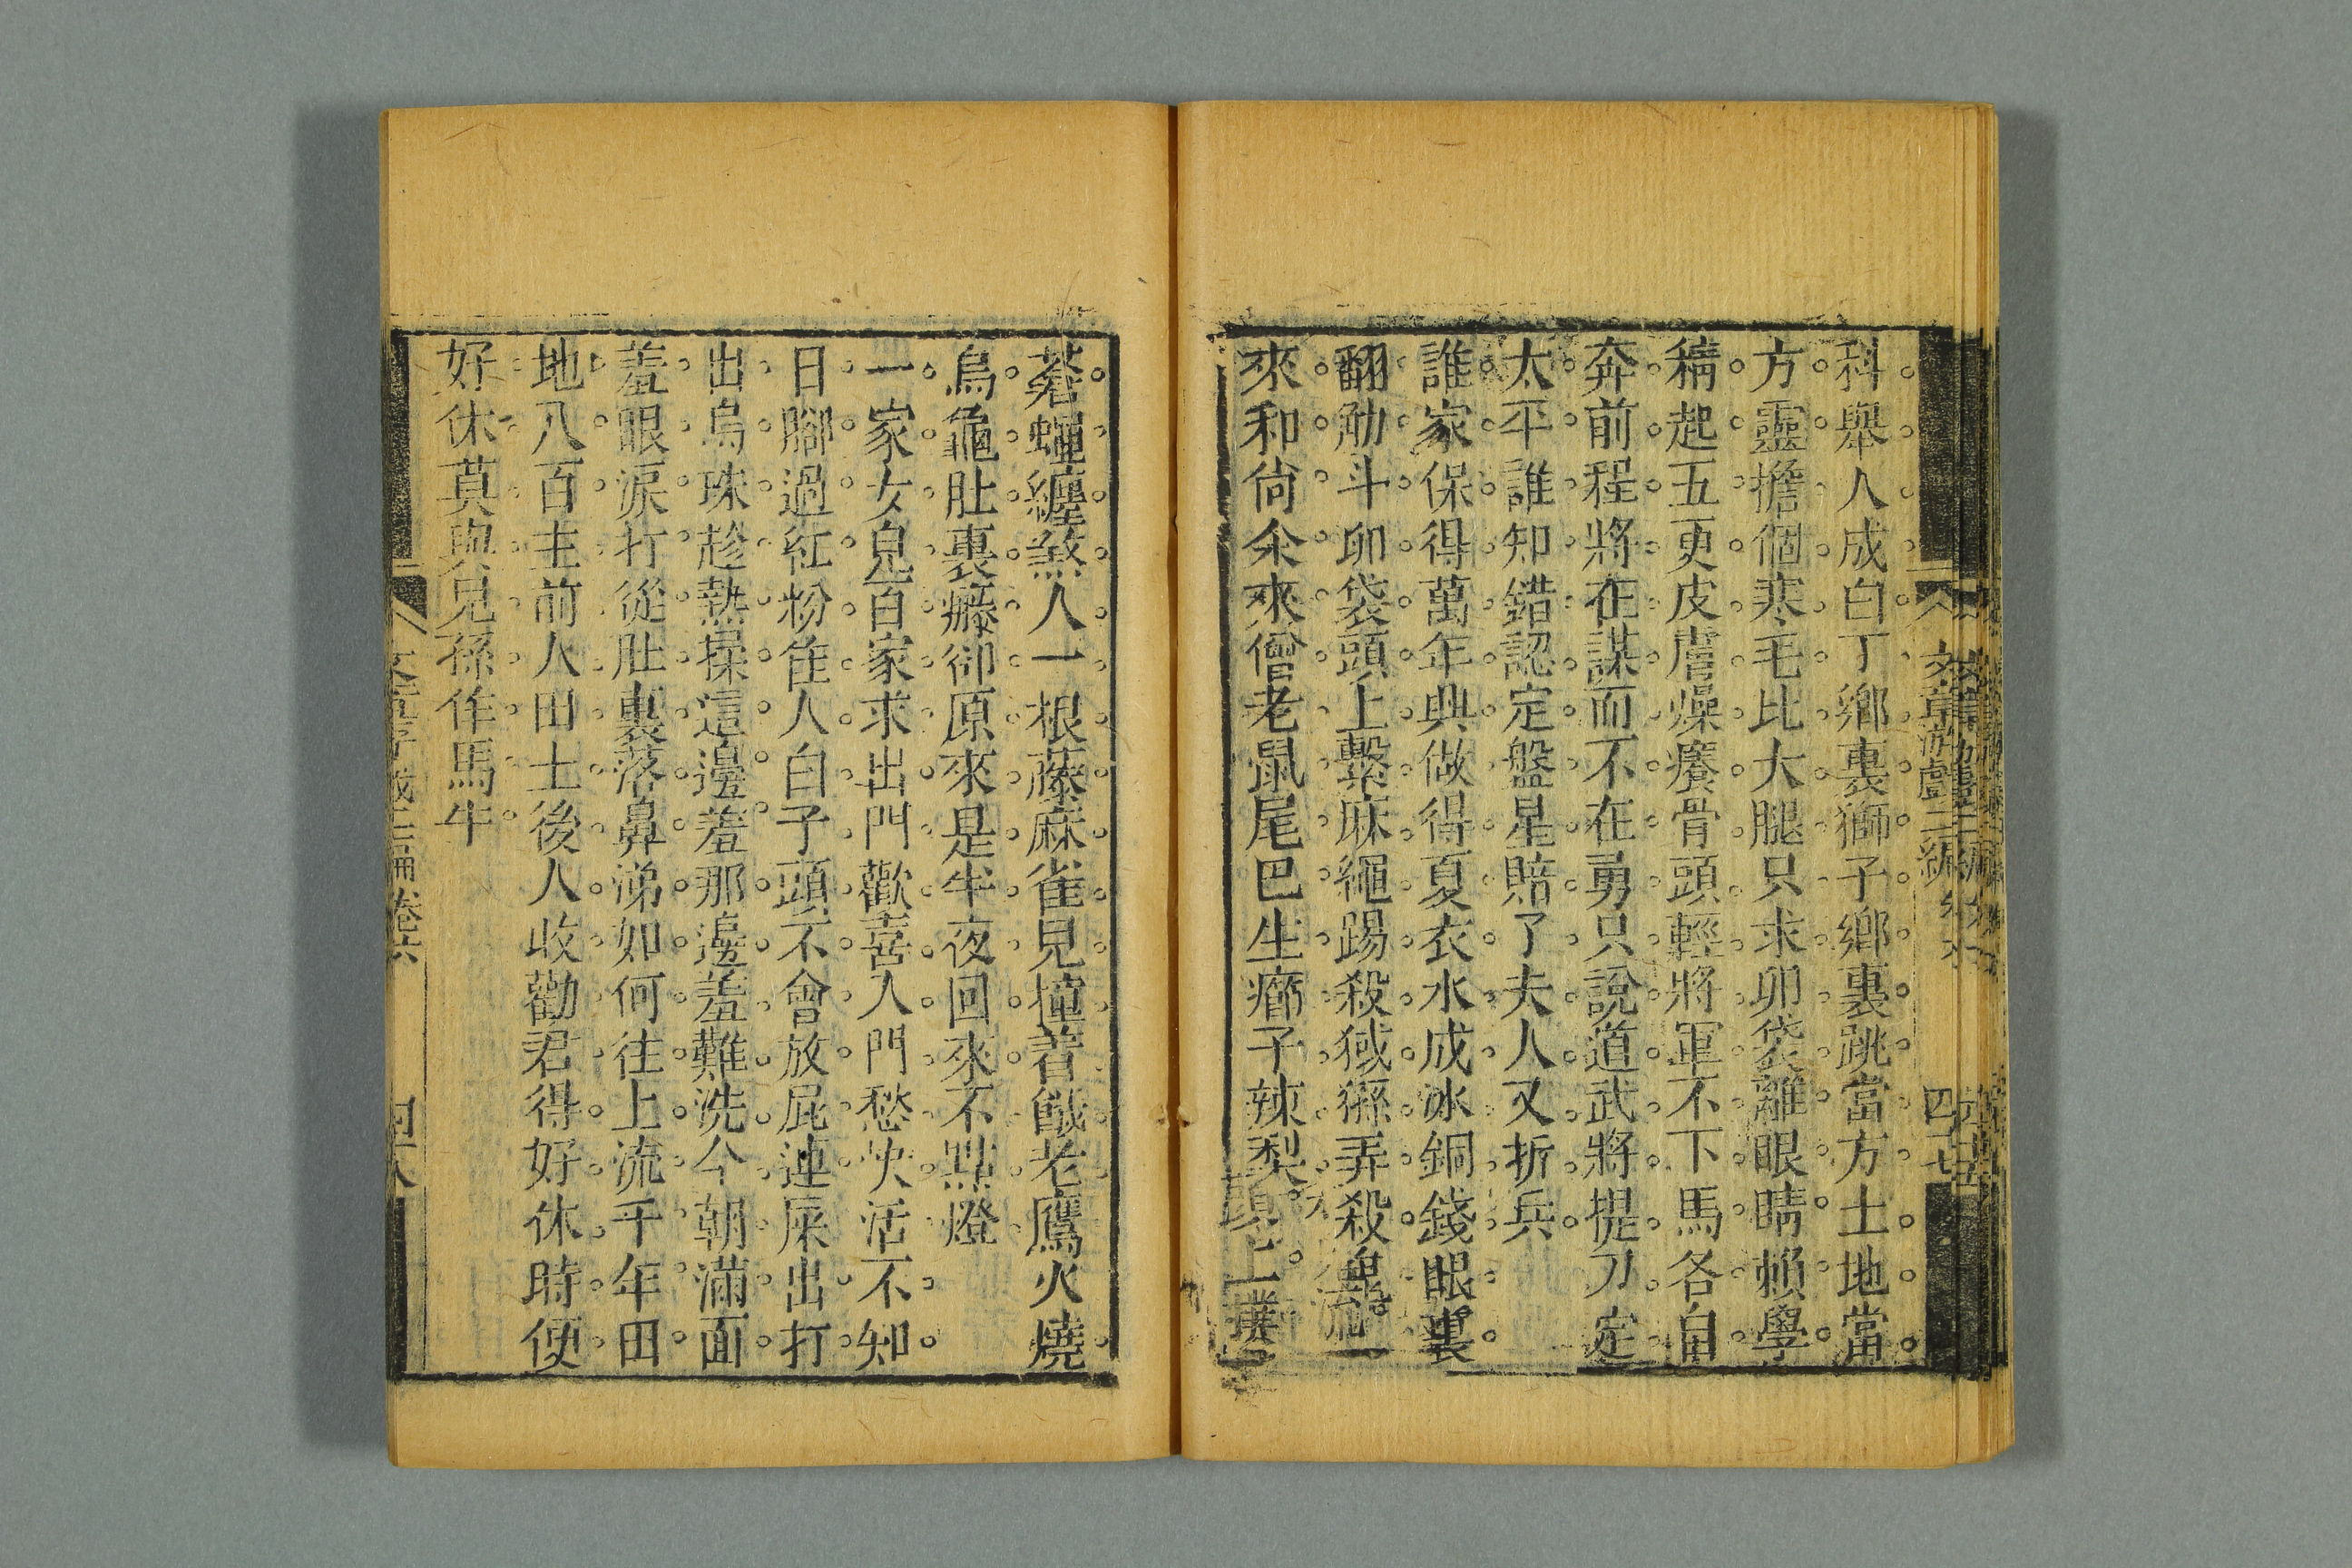 科舉人成白丁鄉裏獅子鄉裏跳當方土地當
方靈擔個寒毛比大腿只求卵袋離眼睛賴學
精起五更皮膚燥癢骨頭輕將軍不下馬各自
奔前程將在謀而不在勇只說道武將提刀定
太平誰知錯認定盤星賠了夫人又折兵
誰家保得萬年興做得夏衣水成冰銅錢眼裏
翻觔斗卵袋頭上繫麻繩踢殺猢猻弄殺鬼一
來和尙籴來僧老鼠尾巴生癤子辣梨頭上
蒼蠅纏煞人一根藤麻雀見撞着餓老鷹火燒
烏龜肚裏癥卻原來是半夜回來不點燈
一家女兒百家求出門歡喜入門愁快活不知
日腳過紅粉隹人白子頭不會放屁連屎出打
出烏珠趁熱揉這邊羞那邊羞難洗今朝滿面
羞眼淚打從肚裏落鼻涕如何往上流千年田
地八百主前人田土後人收勸君得好休時便
好休莫與兒孫作馬牛
文章游戲三編
四十七
卷六